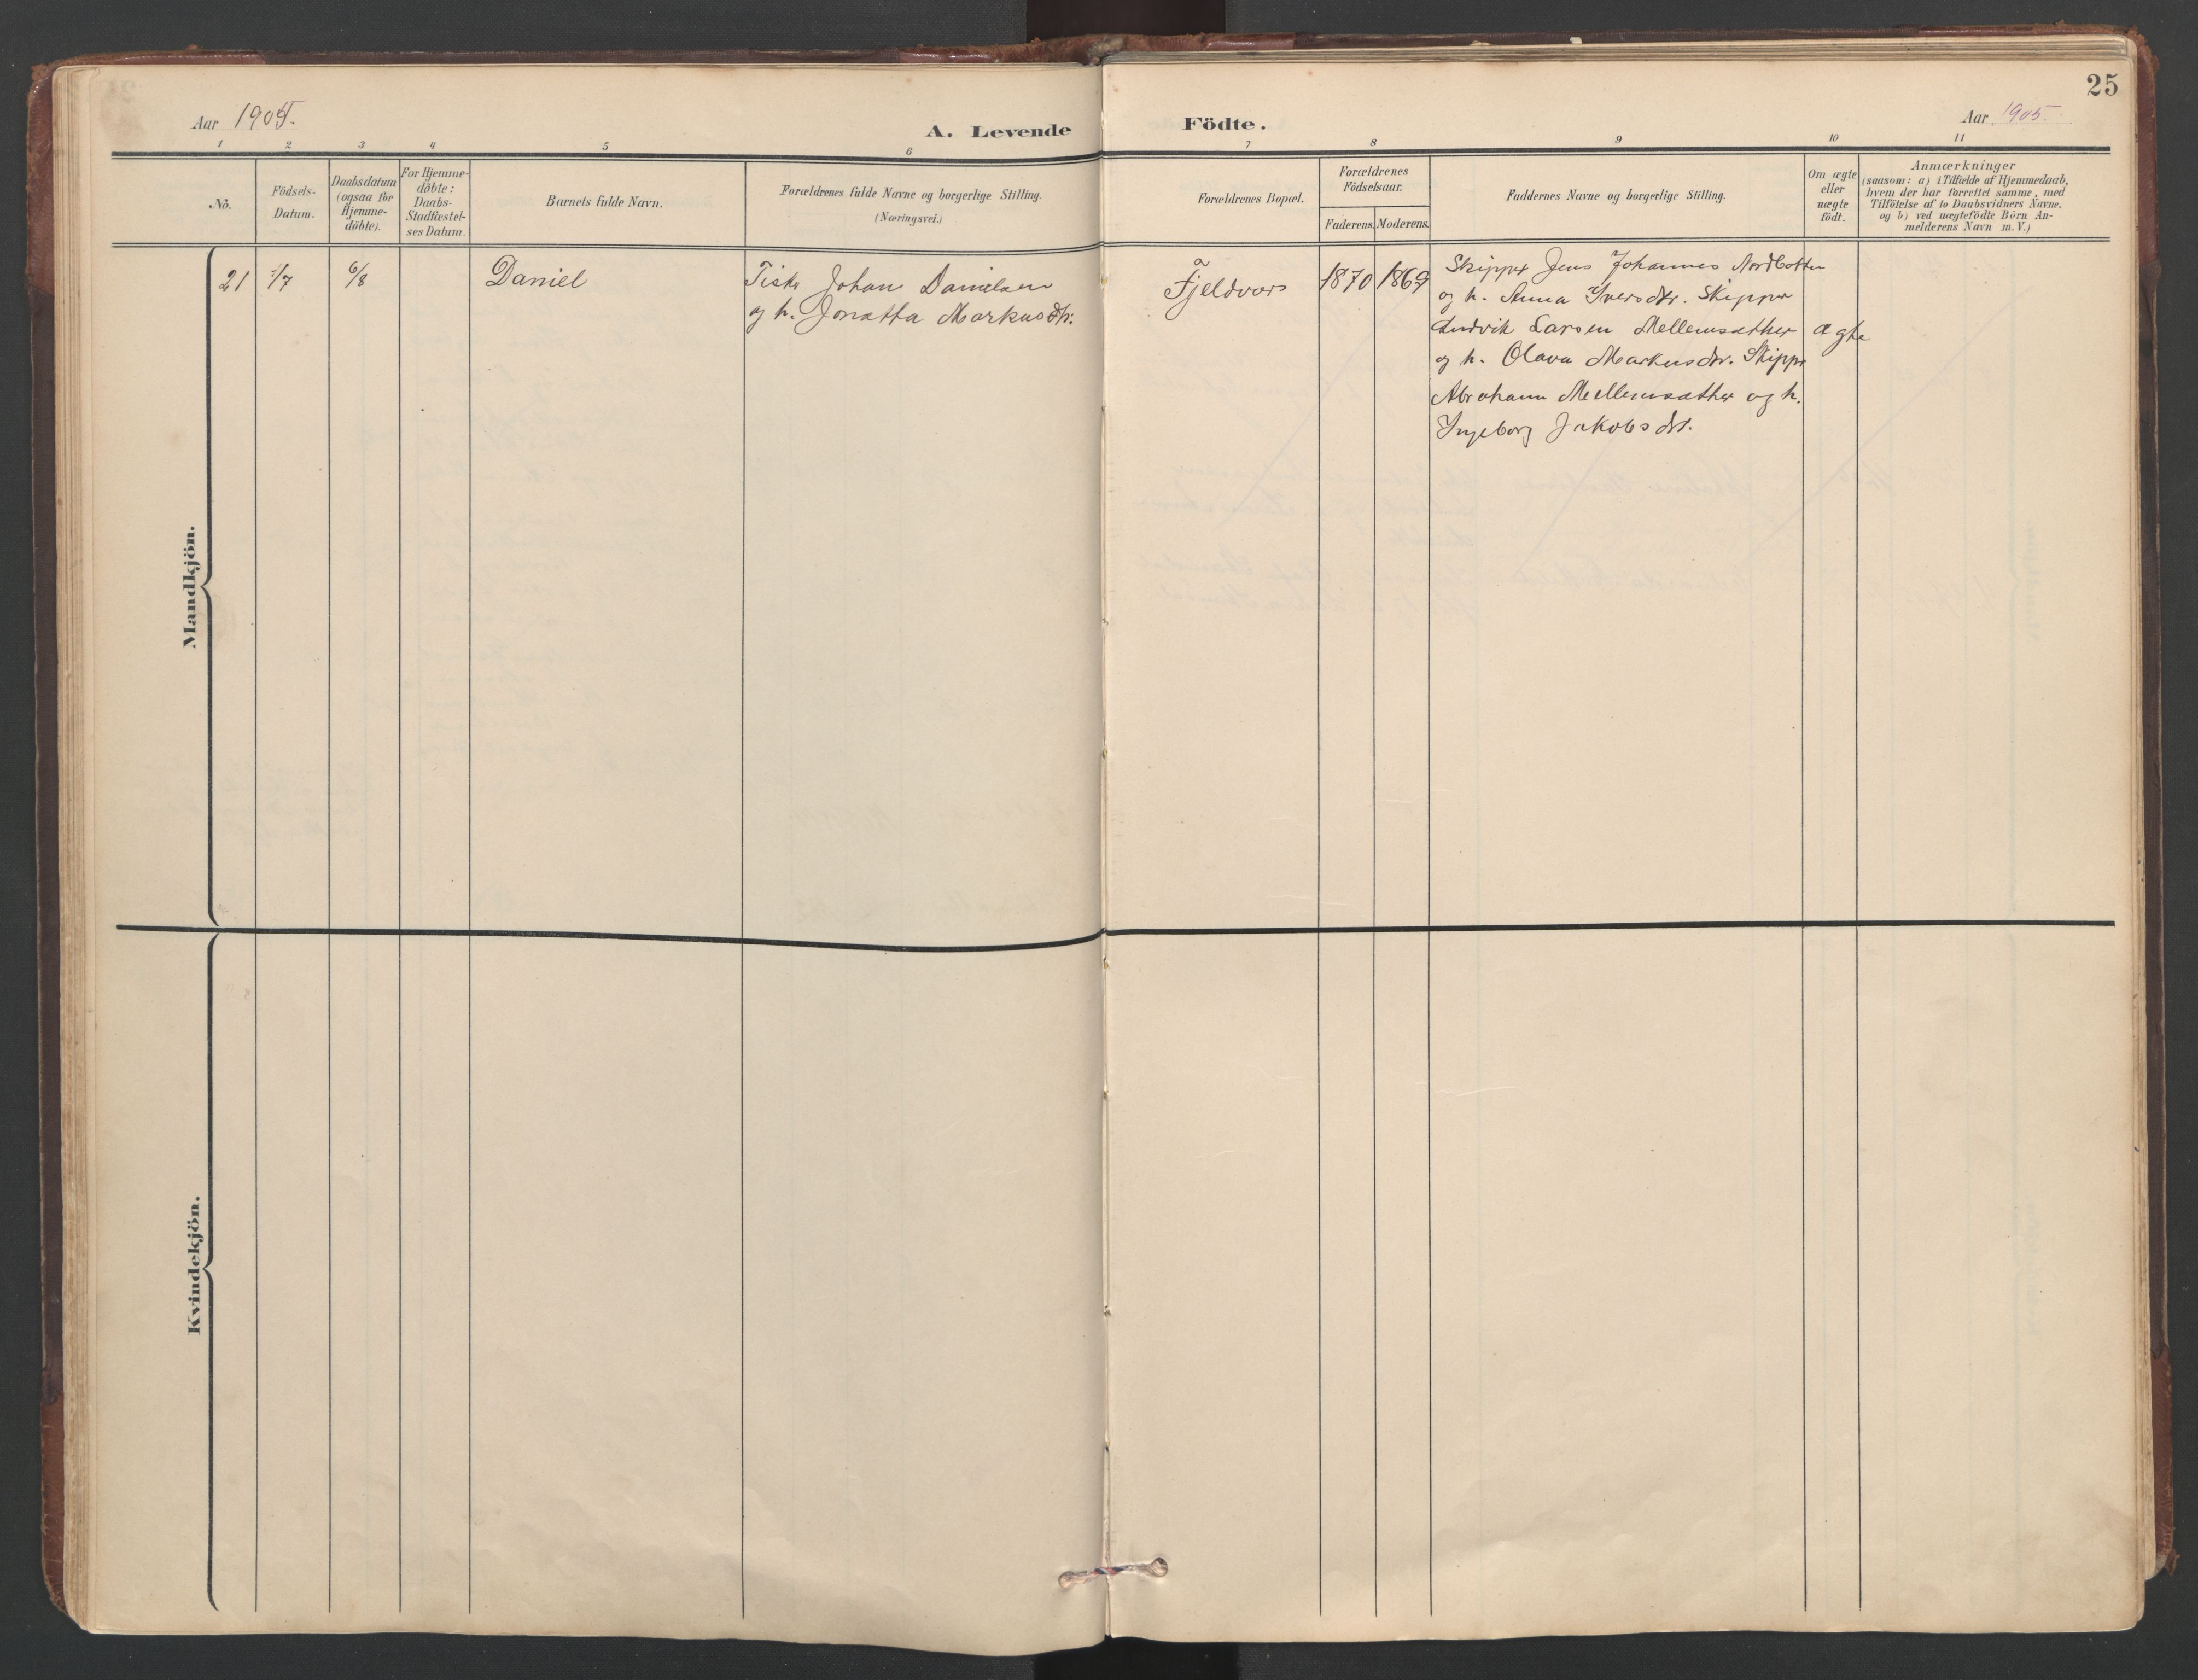 25
Aar 1905.
A. Levende Födte.
Aar 1905.
1 2 3 4 5 6 7 8 9 10 11
No.
Födsels-
Datum.
Daabsdatum
(ogsaa for
Hjemme-
döbte).
For Hjemme-
döbte:
Daabs-
Stadfæstel-
ses Datum.
Barnets fulde Navn.
Forældrenes fulde Navne og borgerlige Stilling.
(Næringsvei.)
Forældrenes Bopæl.
Forældrenes
Födselsaar.
Faderens. Moderens.
Faddernes Navne og borgerlige Stilling.
Om ægte
eller
uægte
födt.
Anmærkninger
(saasom: a) i Tilfælde af Hjemmedaab,
hvem der har forrettet samme, med
Tilföielse af to Daabsvidners Navne.
og b) ved uægtefödte Börn An-
melderens Navn m.V.)
Mandkjön.
21 /7 6/8 Daniel
Fisk. Johan Danielsen
og h. Jonetta Markusdtr.
Fjeldvær
1870 1869
Skipper Jens Johannes Nordbotten
og h. Anna Iversdtr. Skipper
Ludvik Larsen Mellemsæther
og h. Olava Markusdtr. Skippr
Abraham Mellemsæther og h.
Ingeborg Jakobsdtr.
ægte
Kvindekjön.